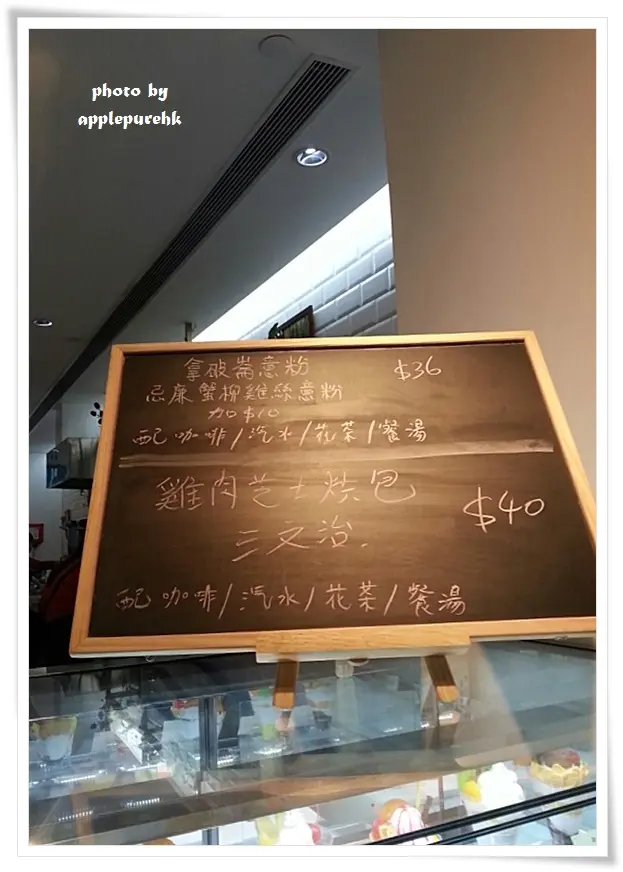 photo by
applepurehk
拿破崙意粉 $36
忌廉蟹柳雞絲意粉
加$10
配咖啡/汽水/花茶/餐湯
雞肉芝士烘包
三文治. $40
配咖啡/汽水/花茶/餐湯